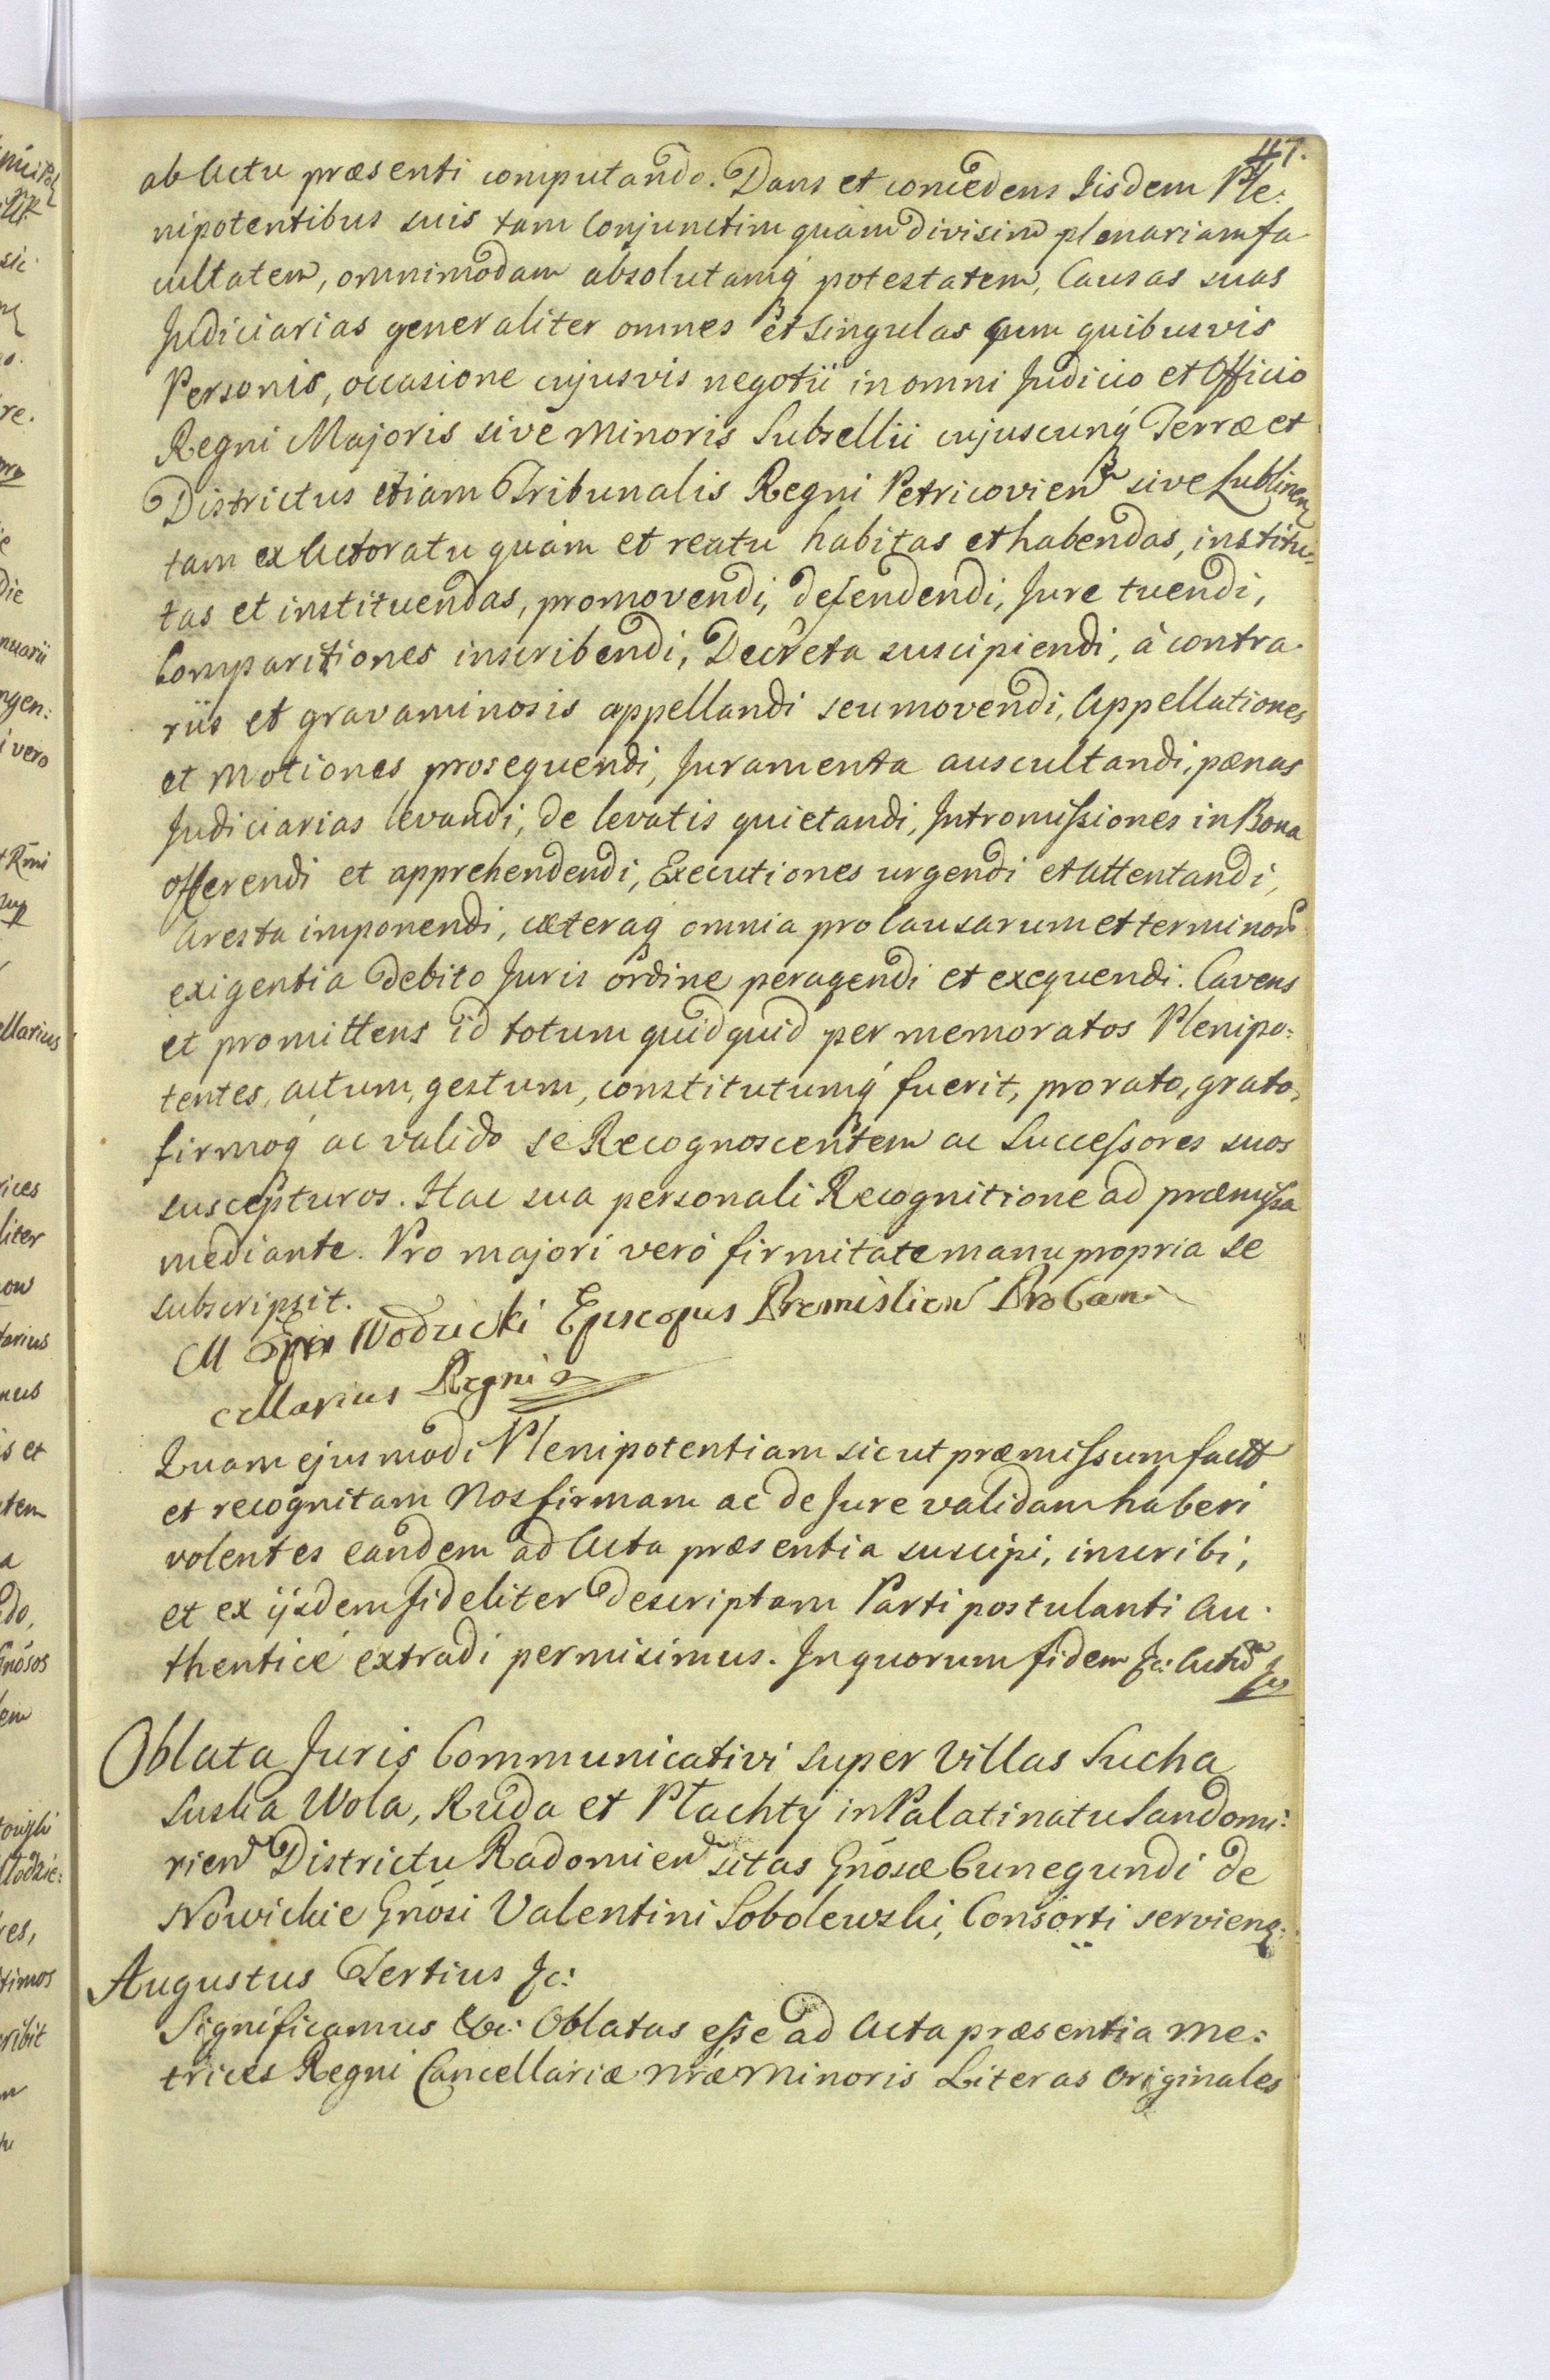 47.
ab Actu præsenti computando. Dans et concedens Iisdem Ple:
nipotentibus suis tam Conjunctim quàm divisim plenariam fa
cultatem, omnimodam absolutamq́ potestatem, Causas suas
Judiciarias generaliter omnes et singulas cum quibusvis
Personis, occasione cujusvis negotii in omni Judicio et Officio
Regni Majoris sive Minoris Subsellii cujuscunq́ Terræ et
Districtus etiam Tribunalis Regni Petricovien sive Lublinen
tam ex Actoratu quàm et reatu habitas et habendas, institu:
tas et instituendas, promovendi, defendendi, Jure tuendi,
Comparitiones inscribendi, Decreta suscipiendi, à contra:
riis et gravaminosis appellandi seu movendi, Appellationes
et Motiones prosequendi, Juramenta auscultandi, pænas
Judiciarias levandi, de levatis quietandi, Intromissiones in Bona
offerendi et apprehendendi, Executiones urgendi et attentandi,
Aresta imponendi, cæteraq́ omnia pro Causarum et terminor
exigentia debito Juris ordine peragendi et exequendi. Cavens
et promittens id totum quidquid per memoratos Plenipo:
tentes, actum, gestum, constitutumq́ fuerit, pro rato, grato,
firmoq́ ac valido se Recognoscentem ac Successores suos
suscepturos. Hac sua personali Recognitione ad præmissa
mediante. Pro majori verò firmitate manu propria se
subscripsit.
Wodzicki Episcopus Premislien Pro Can
cellarius Regni
Quam ejusmodi Plenipotentiam sicut præmissum fact
et recognitam Nos firmam ac de Jure validam haberi
volentes eandem ad Acta præsentia suscipi, inscribi,
et ex iisdem fideliter descriptam Parti postulanti Au:
thenticè extradi permisimus. In quorum fidem &c: Actum
Oblata Juris Communicativi super Villas Sucha
Suska Wola, Ruda et Płachty in Palatinatu Sandomi:
rien Districtu Radomien sitas Gnosæ Cunegundi de
Nowickie Gnosi Valentini Sobolewski, Consorti serviens.
Augustus Tertius &c:
Significamus &c: Oblatas esse ad Acta præsentia Me:
trices Regni Cancellariæ nræ Minoris Literas Originales